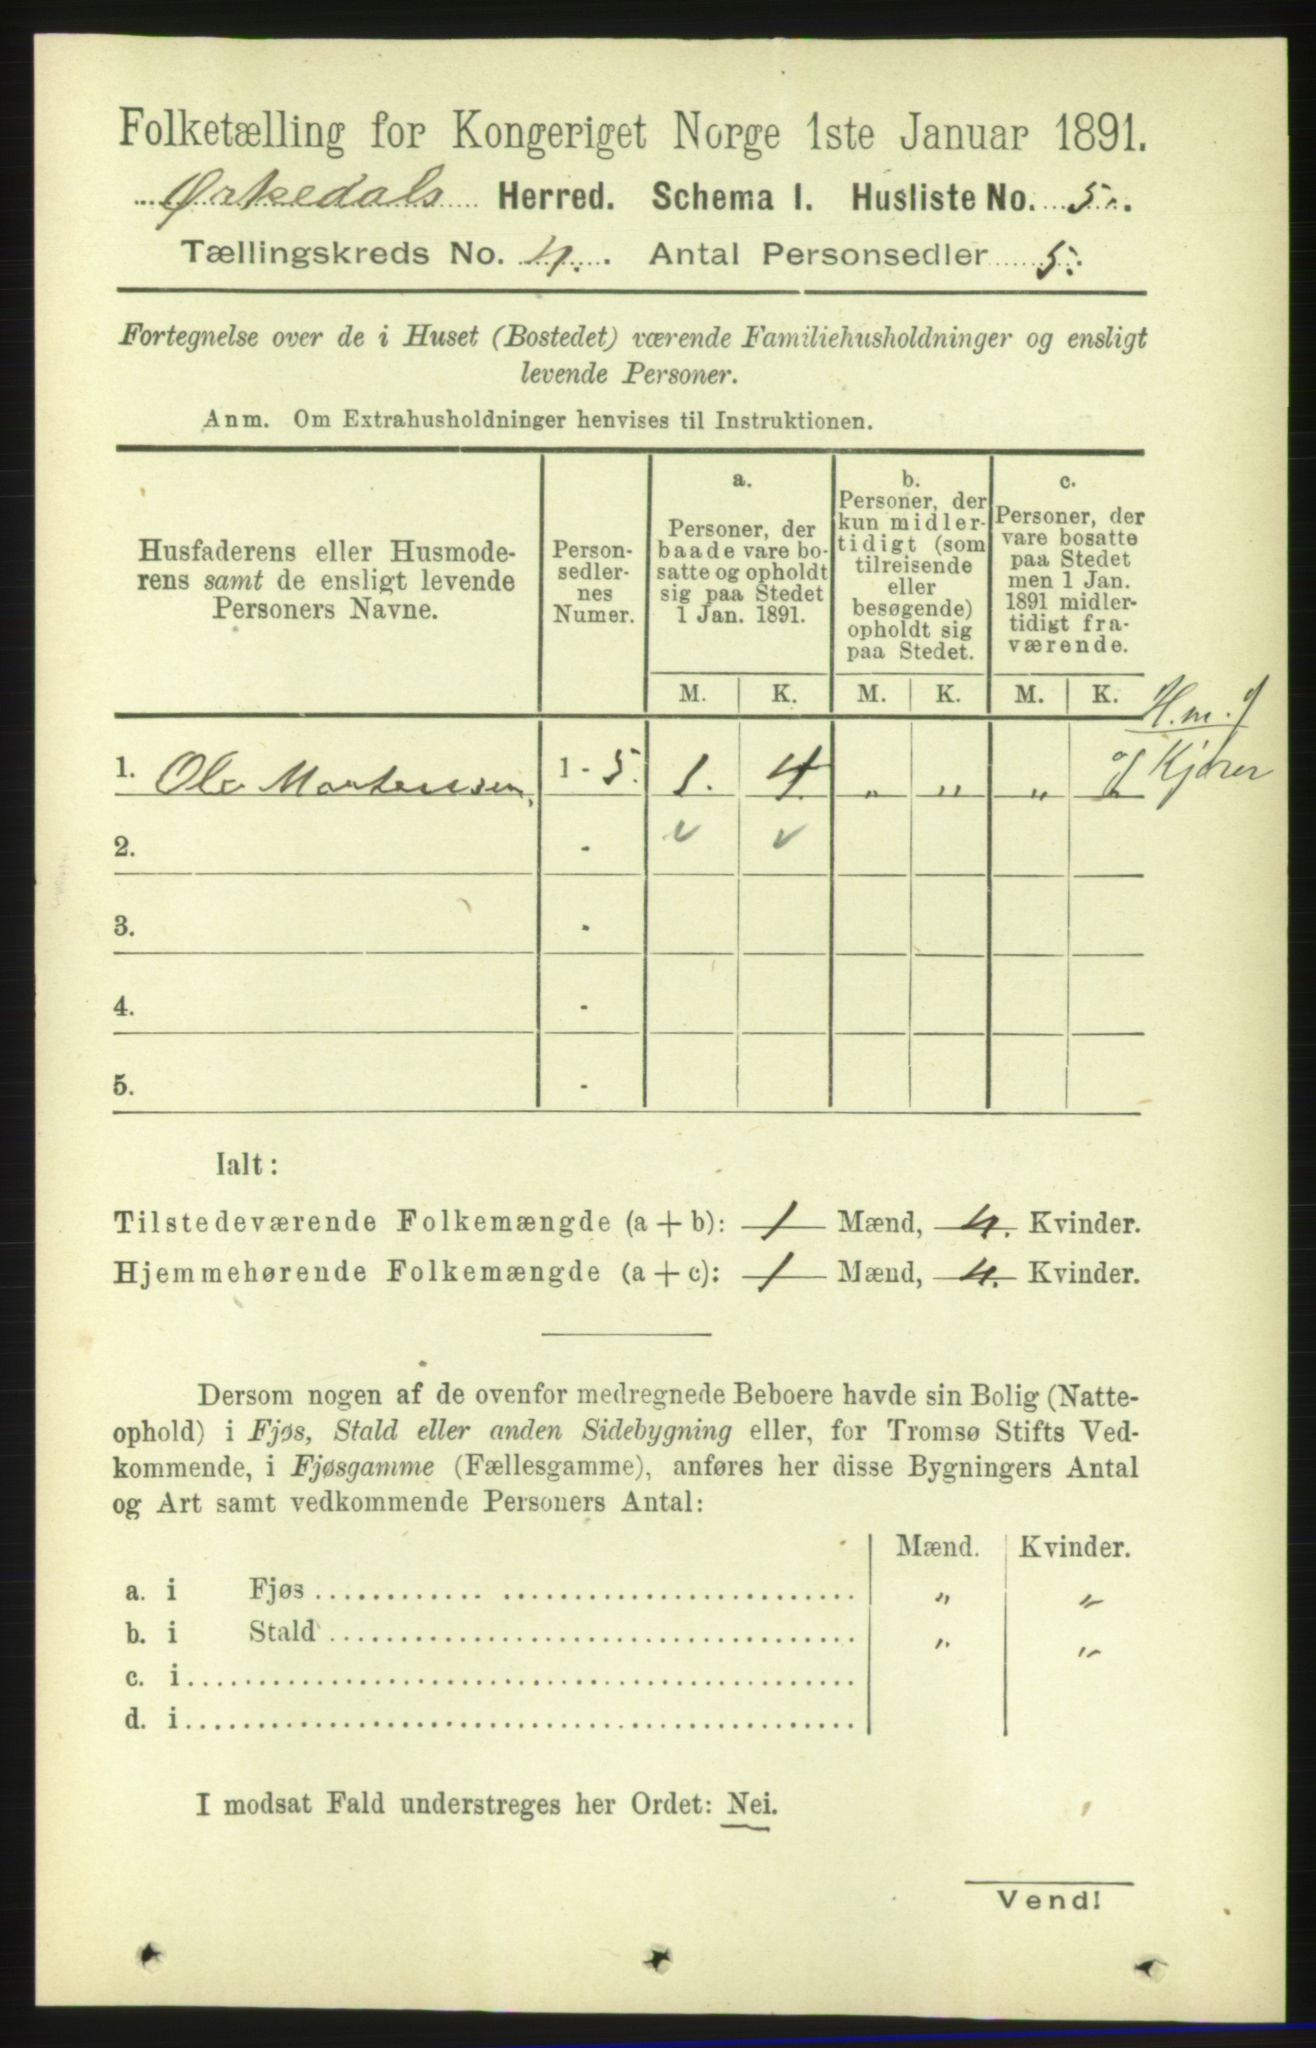 Folketælling for Kongeriget Norge 1ste Januar 1891.
Ørkedals Herred. Schema I. Husliste No. 5.
Tællingskreds No. 4. Antal Personsedler 5.
Fortegnelse over de i Huset (Bostedet) værende Familiehusholdninger og ensligt
levende Personer.
Anm. Om Extrahusholdninger henvises til Instruktionen.
Husfaderens eller Husmode-
rens samt de ensligt levende
Personers Navne.
Person-
sedler-
nes
Numer.
a.
Personer, der
baade vare bo-
satte og opholdt
sig paa Stedet
1 Jan. 1891.
b.
Personer, der
kun midler-
tidigt (som
tilreisende
eller
besøgende)
opholdt sig
paa Stedet.
c.
Personer, der
vare bosatte
paa Stedet
men 1 Jan.
1891 midler-
tidigt fra-
værende.
M. K. M. K. M. K.
H.m.J
1. Ole Mortensen, 1 - 5. 1. 4. „ „ „ „
2. - ✓ ✓
3. -
4. -
5. -
Ialt:
Tilstedeværende Folkemængde (a + b): 1 Mænd, 4. Kvinder.
Hjemmehørende Folkemængde (a + c): 1 Mænd, 4. Kvinder.
Dersom nogen af de ovenfor medregnede Beboere havde sin Bolig (Natte-
ophold) i Fjøs, Stald eller anden Sidebygning eller, for Tromsø Stifts Ved-
kommende, i Fjøsgamme (Fællesgamme), anføres her disse Bygningers Antal
og Art samt vedkommende Personers Antal:
Mænd. Kvinder.
a. i Fjøs „ „
b. i Stald „ „
c. i
d. i
I modsat Fald understreges her Ordet: Nei.
Vend!